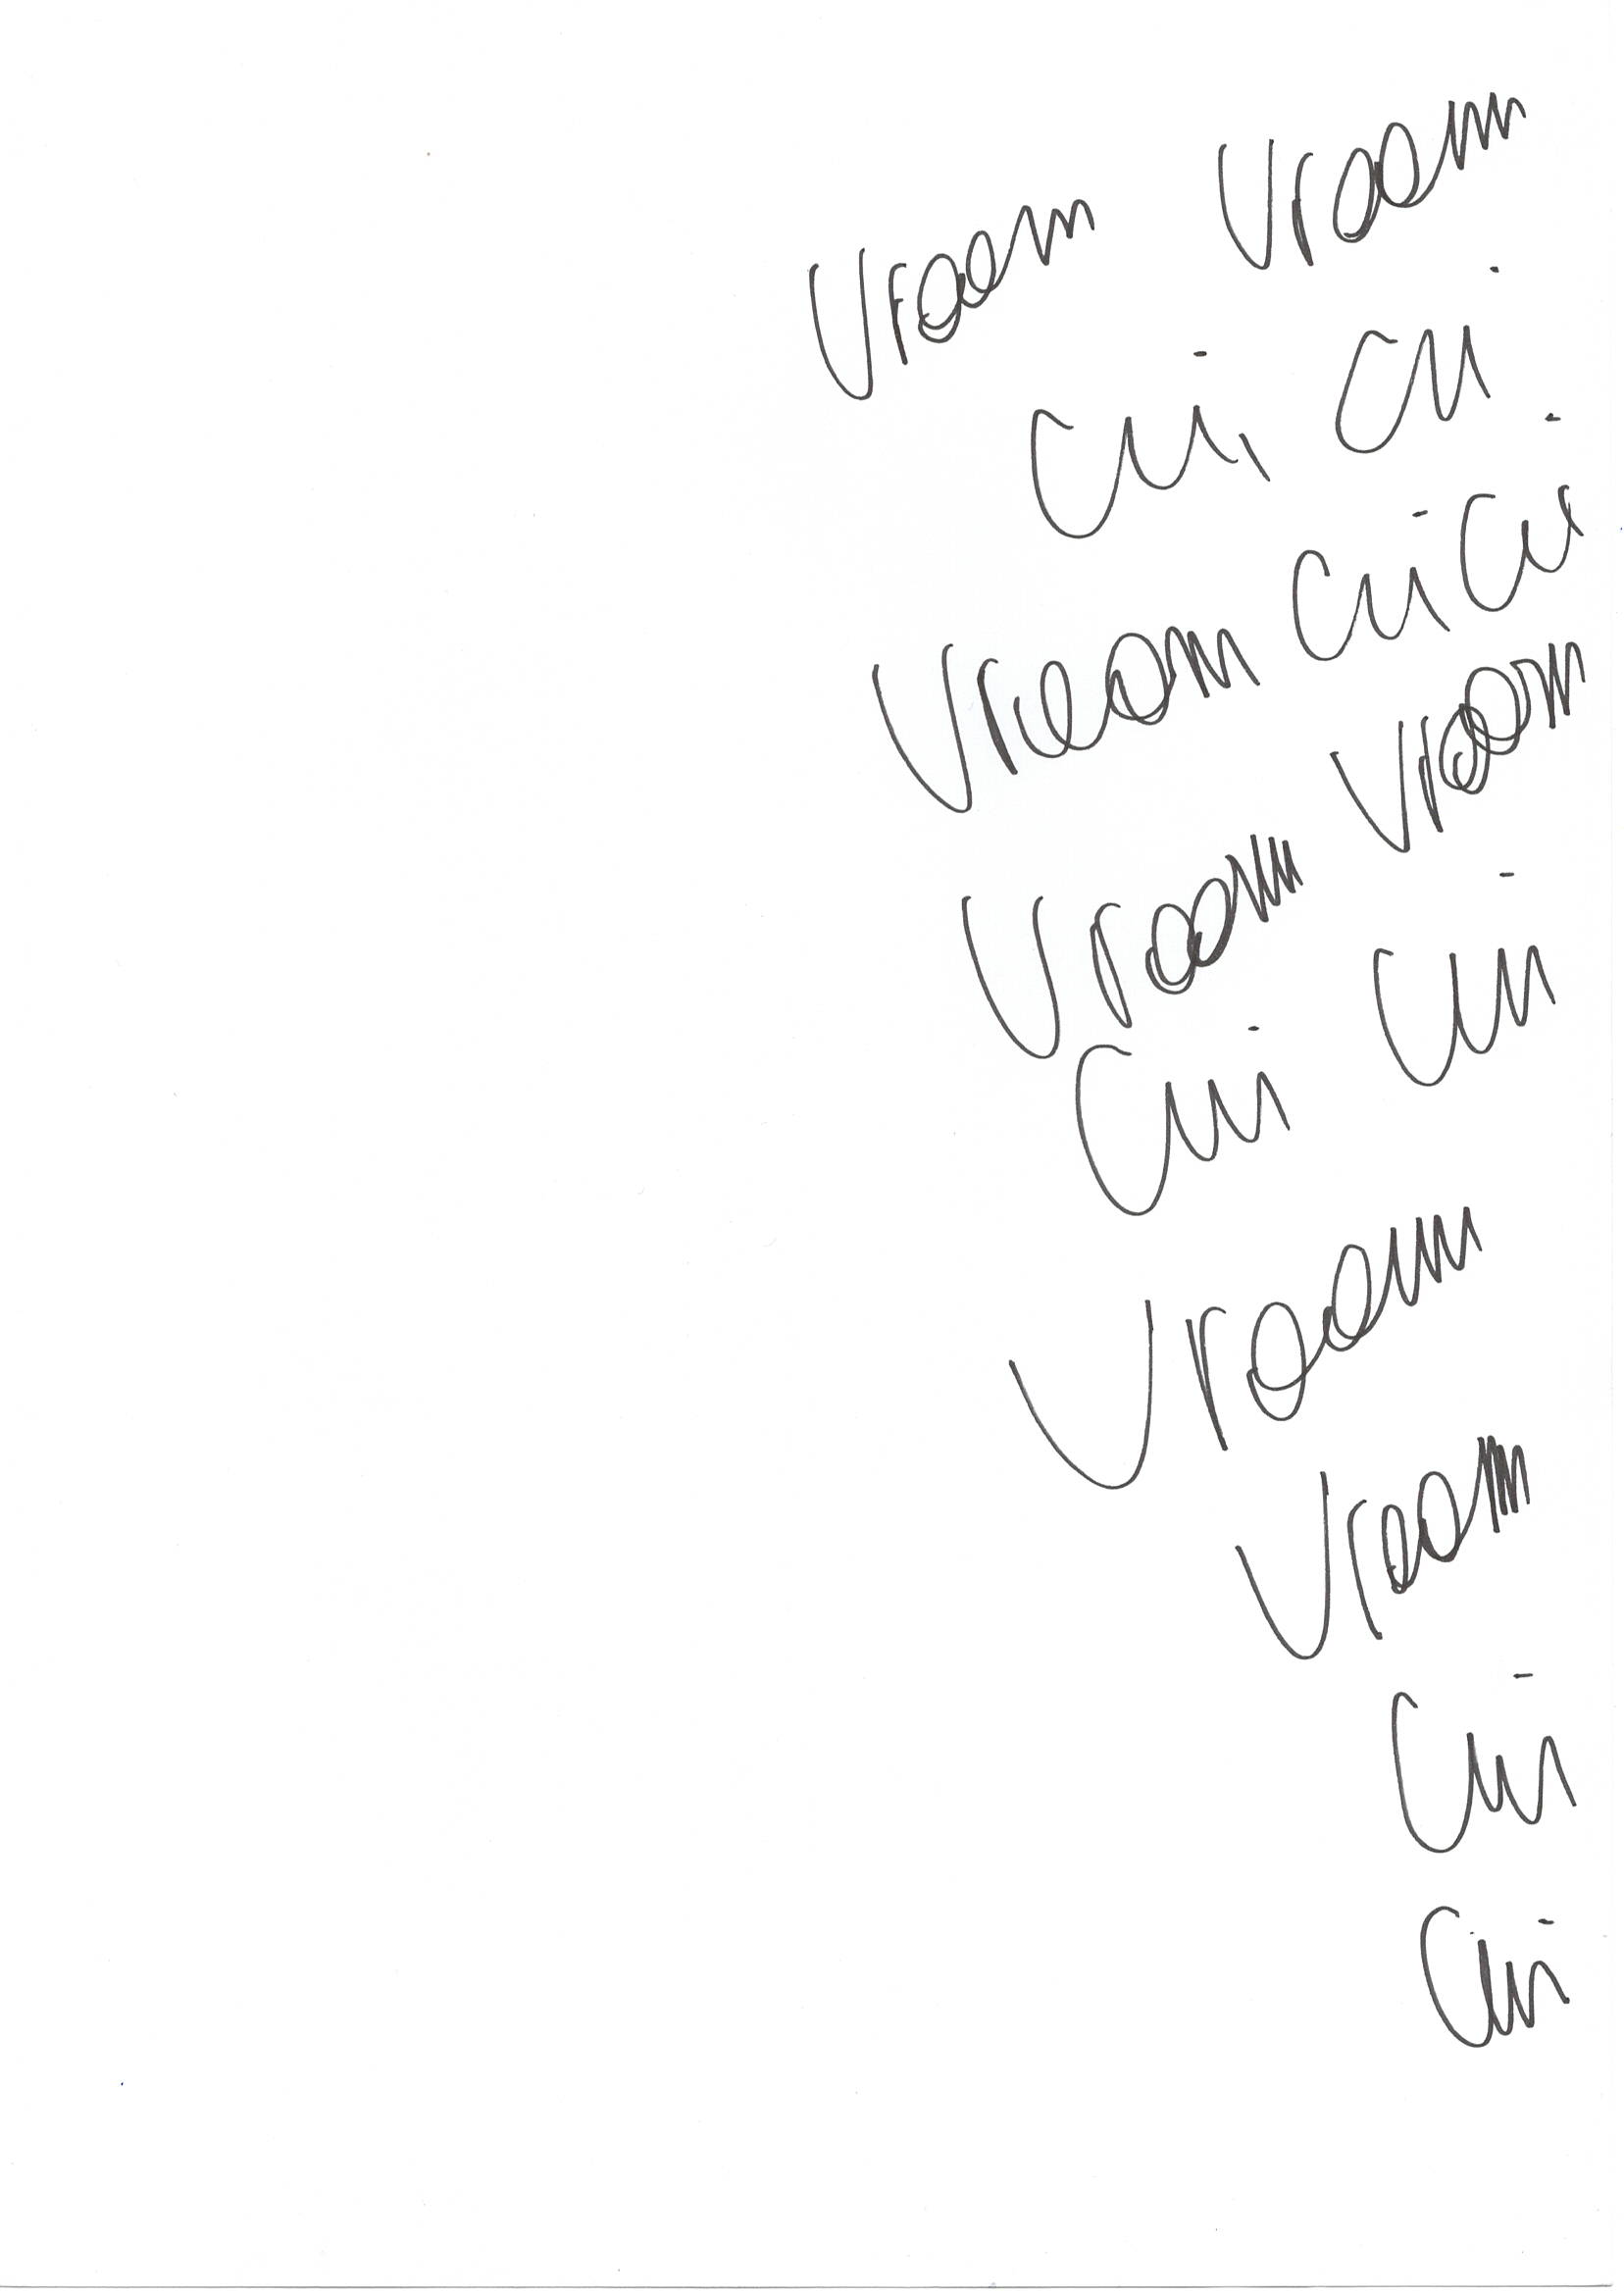 Vroom Vroom
Cui, Cui
Vroom Cui Cui
Vroom Vroom
Cui Cui
Vroom
Vroom
Cui
Cui